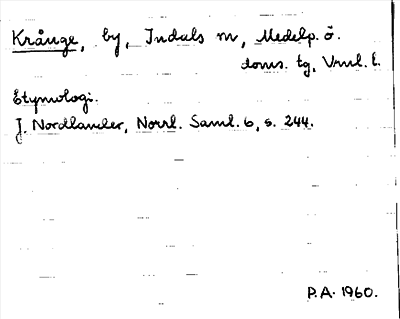 Krånge, by, Indals sn, Medelp. ö.
doms. tg, Vrnl. l.
Etymologi.
J. Nordlander, Norrl. Saml. 6, s. 244.
P.A. 1960.